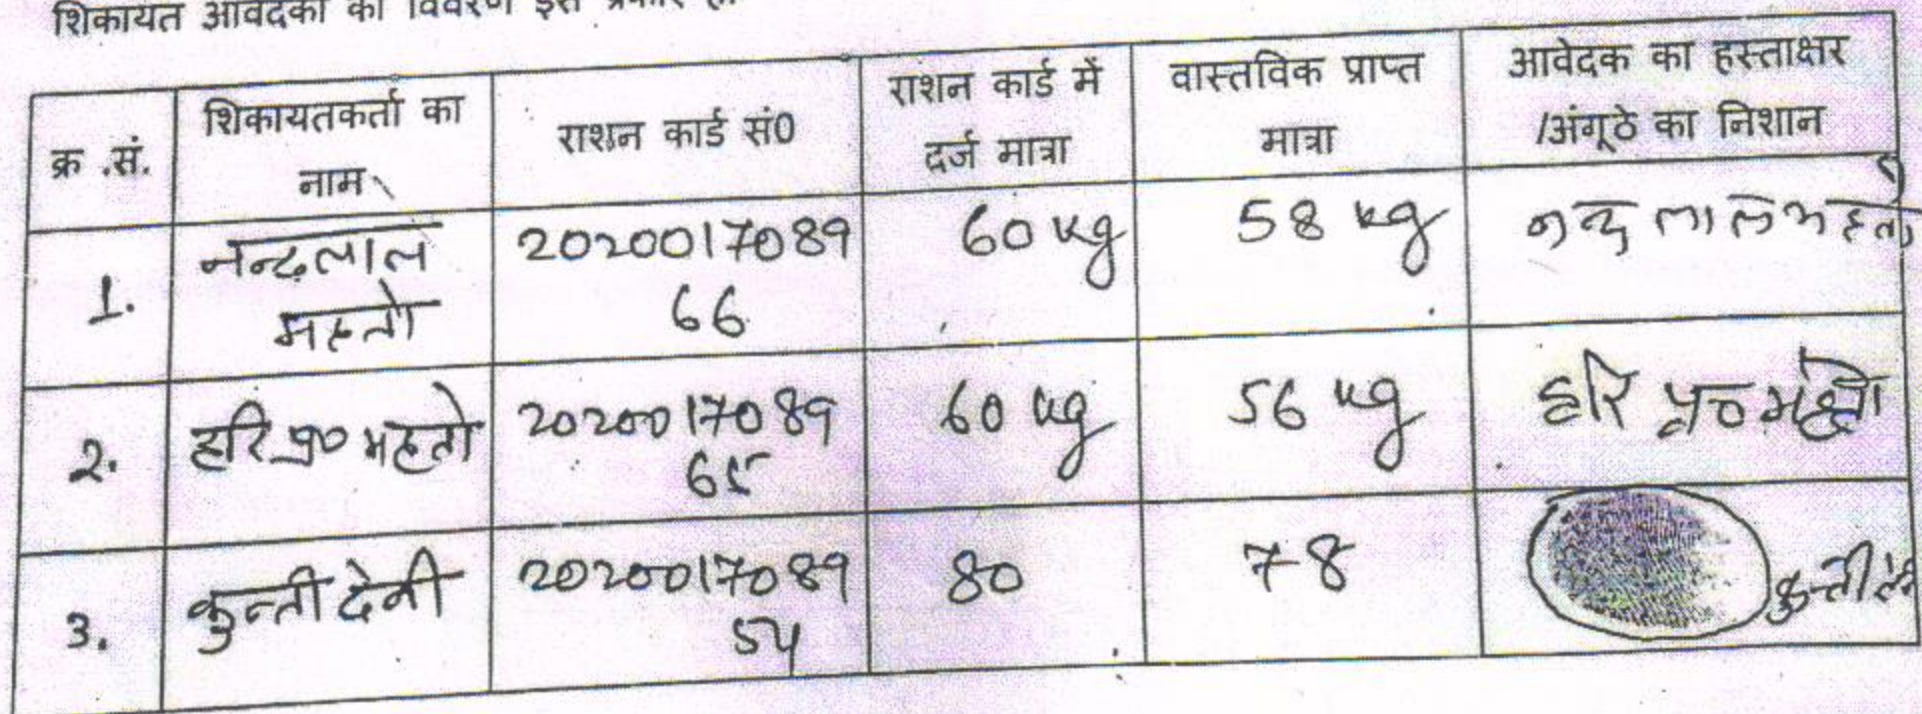 शिकायत आवेदकों का विवरण इस प्रकार है।
क्र .सं. शिकायतकर्ता का नाम राशन कार्ड सं0 राशन कार्ड में दर्ज मात्रा वास्तविक प्राप्त मात्रा आवेदक का हस्ताक्षर /अंगूठे का निशान
1. नन्दलाल महतो 2020017089 66 60 kg 58 kg नन्द लाल महतो
2. हरि प्र० महतो 2020017089 65 60 kg 56 kg हरि प्र० महतो
3. कुन्ती देवी 2020017089 54 80 78 कुन्ती देवी